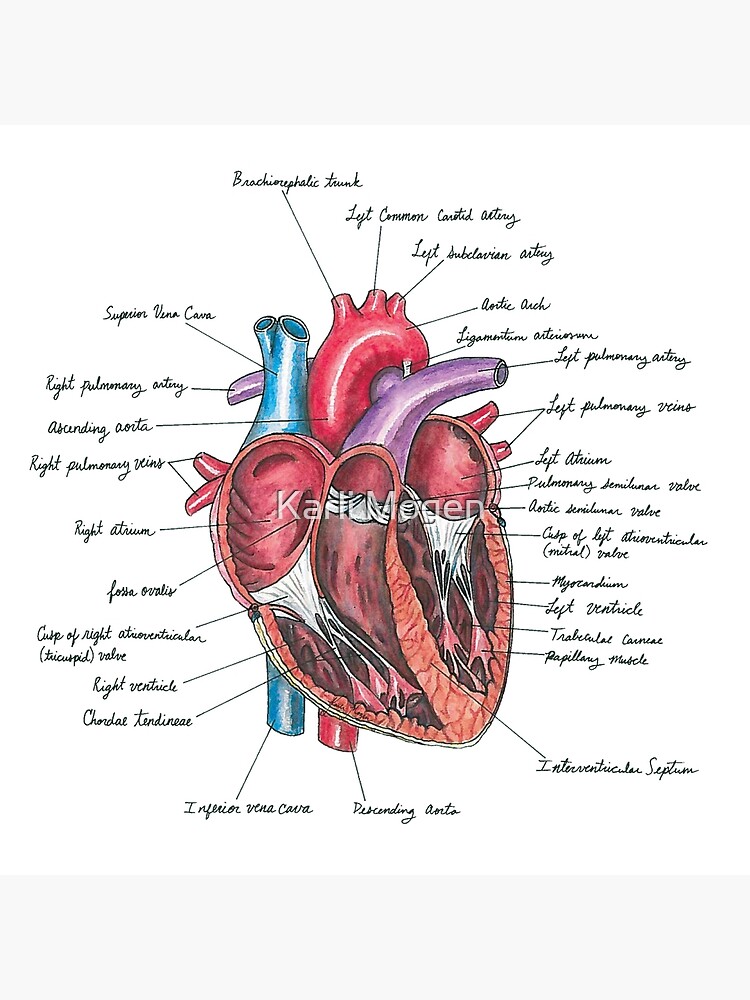 Brachiocephalic trunk
Left Common Carotid artery
Left subclavian artery
Aortic Arch
Superior Vena Cava
Ligamentum arteriosum
Left pulmonary artery
Right pulmonary artery
Left pulmonary veins
Ascending aorta
Right pulmonary veins
Left Atrium
Pulmonary semilunar valve
Aortic semilunar valve
Karli Mogen
Right atrium
Cusp of left atrioventricular
(mitral) valve
Myocardium
fossa ovalis
Left Ventricle
Cusp of right atrioventricular
(tricuspid) valve
Trabeculae Carneae
Papillary Muscle
Right ventricle
Chordae tendineae
Interventricular Septum
Inferior vena cava
Descending Aorta